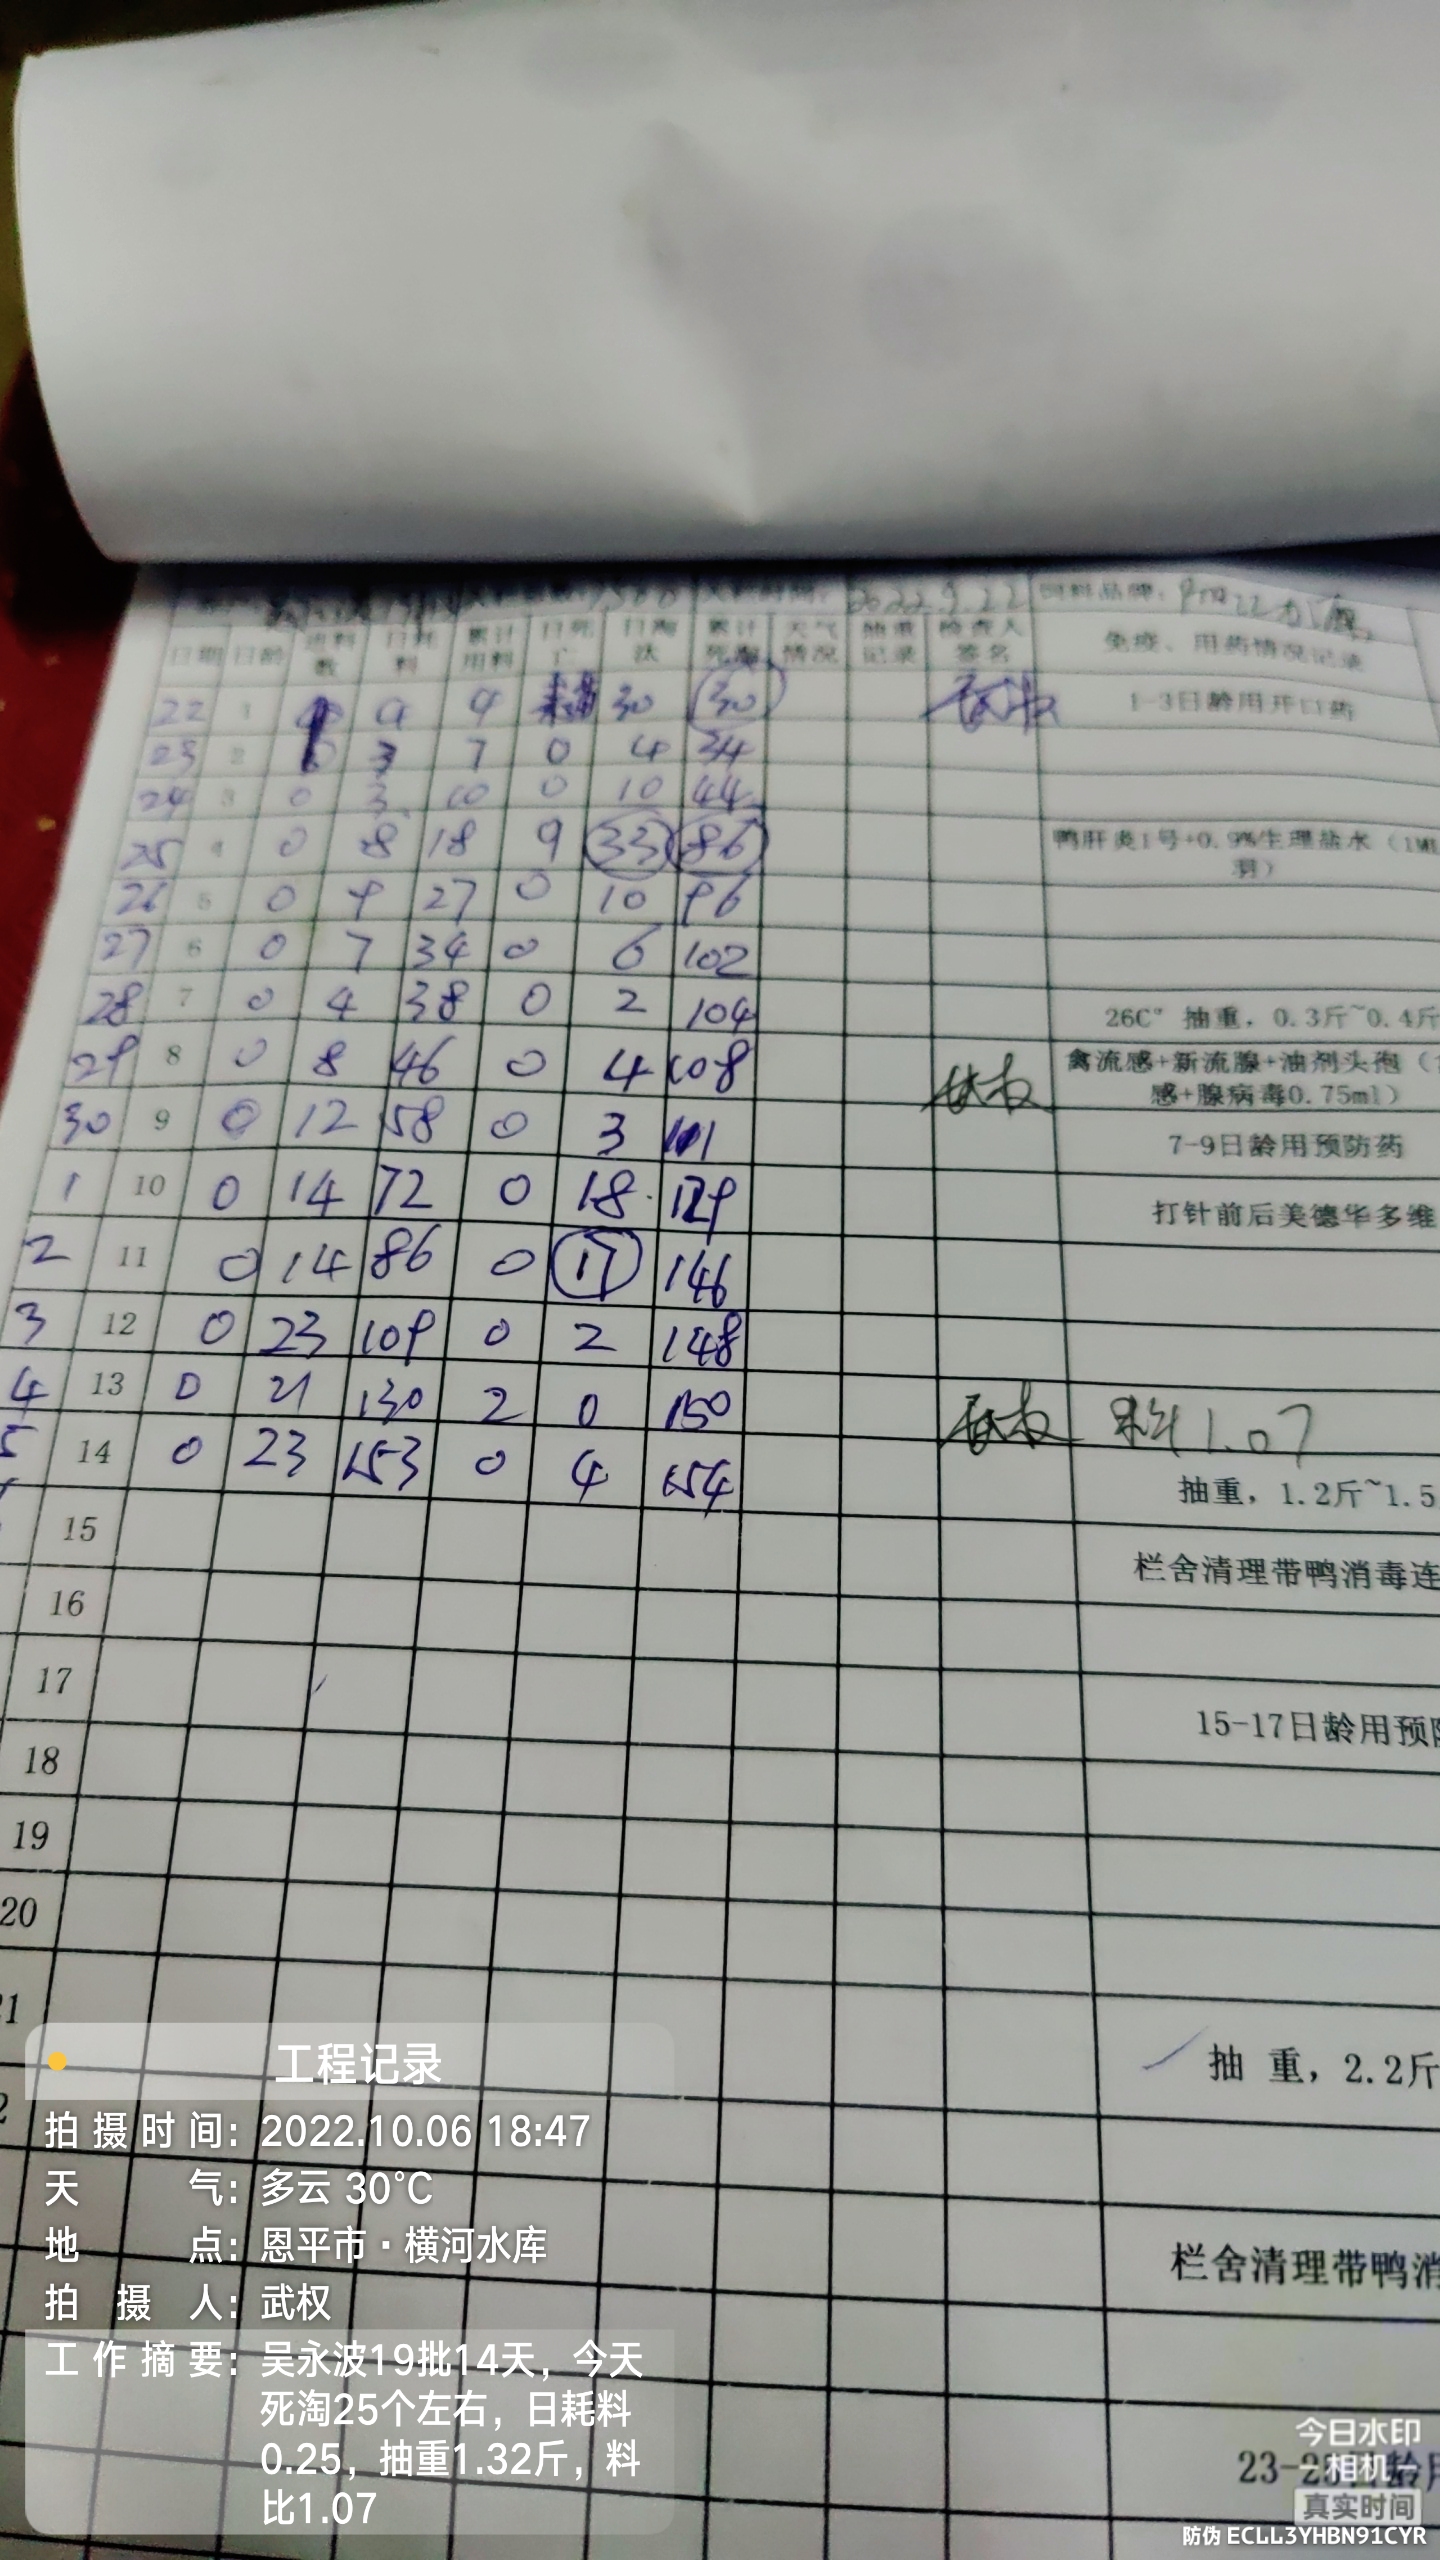 2022.9.22 饲料品牌：
日期 日龄 进料数 日耗料 累计用料 日死亡 日淘汰 累计死淘 天气情况 抽重记录 检查人签名 免疫、用药情况记录
22 1 4 9 30 30 1-3日龄用开口药
23 2 3 7 0 4 34
24 3 0 3 10 0 10 44
25 4 0 8 18 9 33 86 鸭肝炎1号+0.9%生理盐水（1ML 羽）
26 5 0 9 27 0 10 96
27 6 0 7 34 0 6 102
28 7 0 4 38 0 2 104 26C° 抽重，0.3斤~0.4斤
29 8 0 8 46 0 4 108 武权 禽流感+新流腺+油剂头孢（ 感+腺病毒0.75ml）
30 9 0 12 58 0 3 111 7-9日龄用预防药
1 10 0 14 72 0 18 129 打针前后美德华多维
2 11 0 14 86 0 17 146
3 12 0 23 109 0 2 148
4 13 0 21 130 2 0 150 武权 料1.07
5 14 0 23 153 0 4 154 抽重，1.2斤~1.5
15 栏舍清理带鸭消毒连
16
17 15-17日龄用预防
18
19
20
21 抽 重，2.2斤
2
栏舍清理带鸭消
23-25日龄用
工程记录
拍摄时间：2022.10.06 18:47
天气：多云 30℃
地点：恩平市·横河水库
拍摄人：武权
工作摘要：吴永波19批14天，今天
死淘25个左右，日耗料
0.25，抽重1.32斤，料
比1.07
今日水印
相机
真实时间
防伪 ECLL3YHBN91CYR